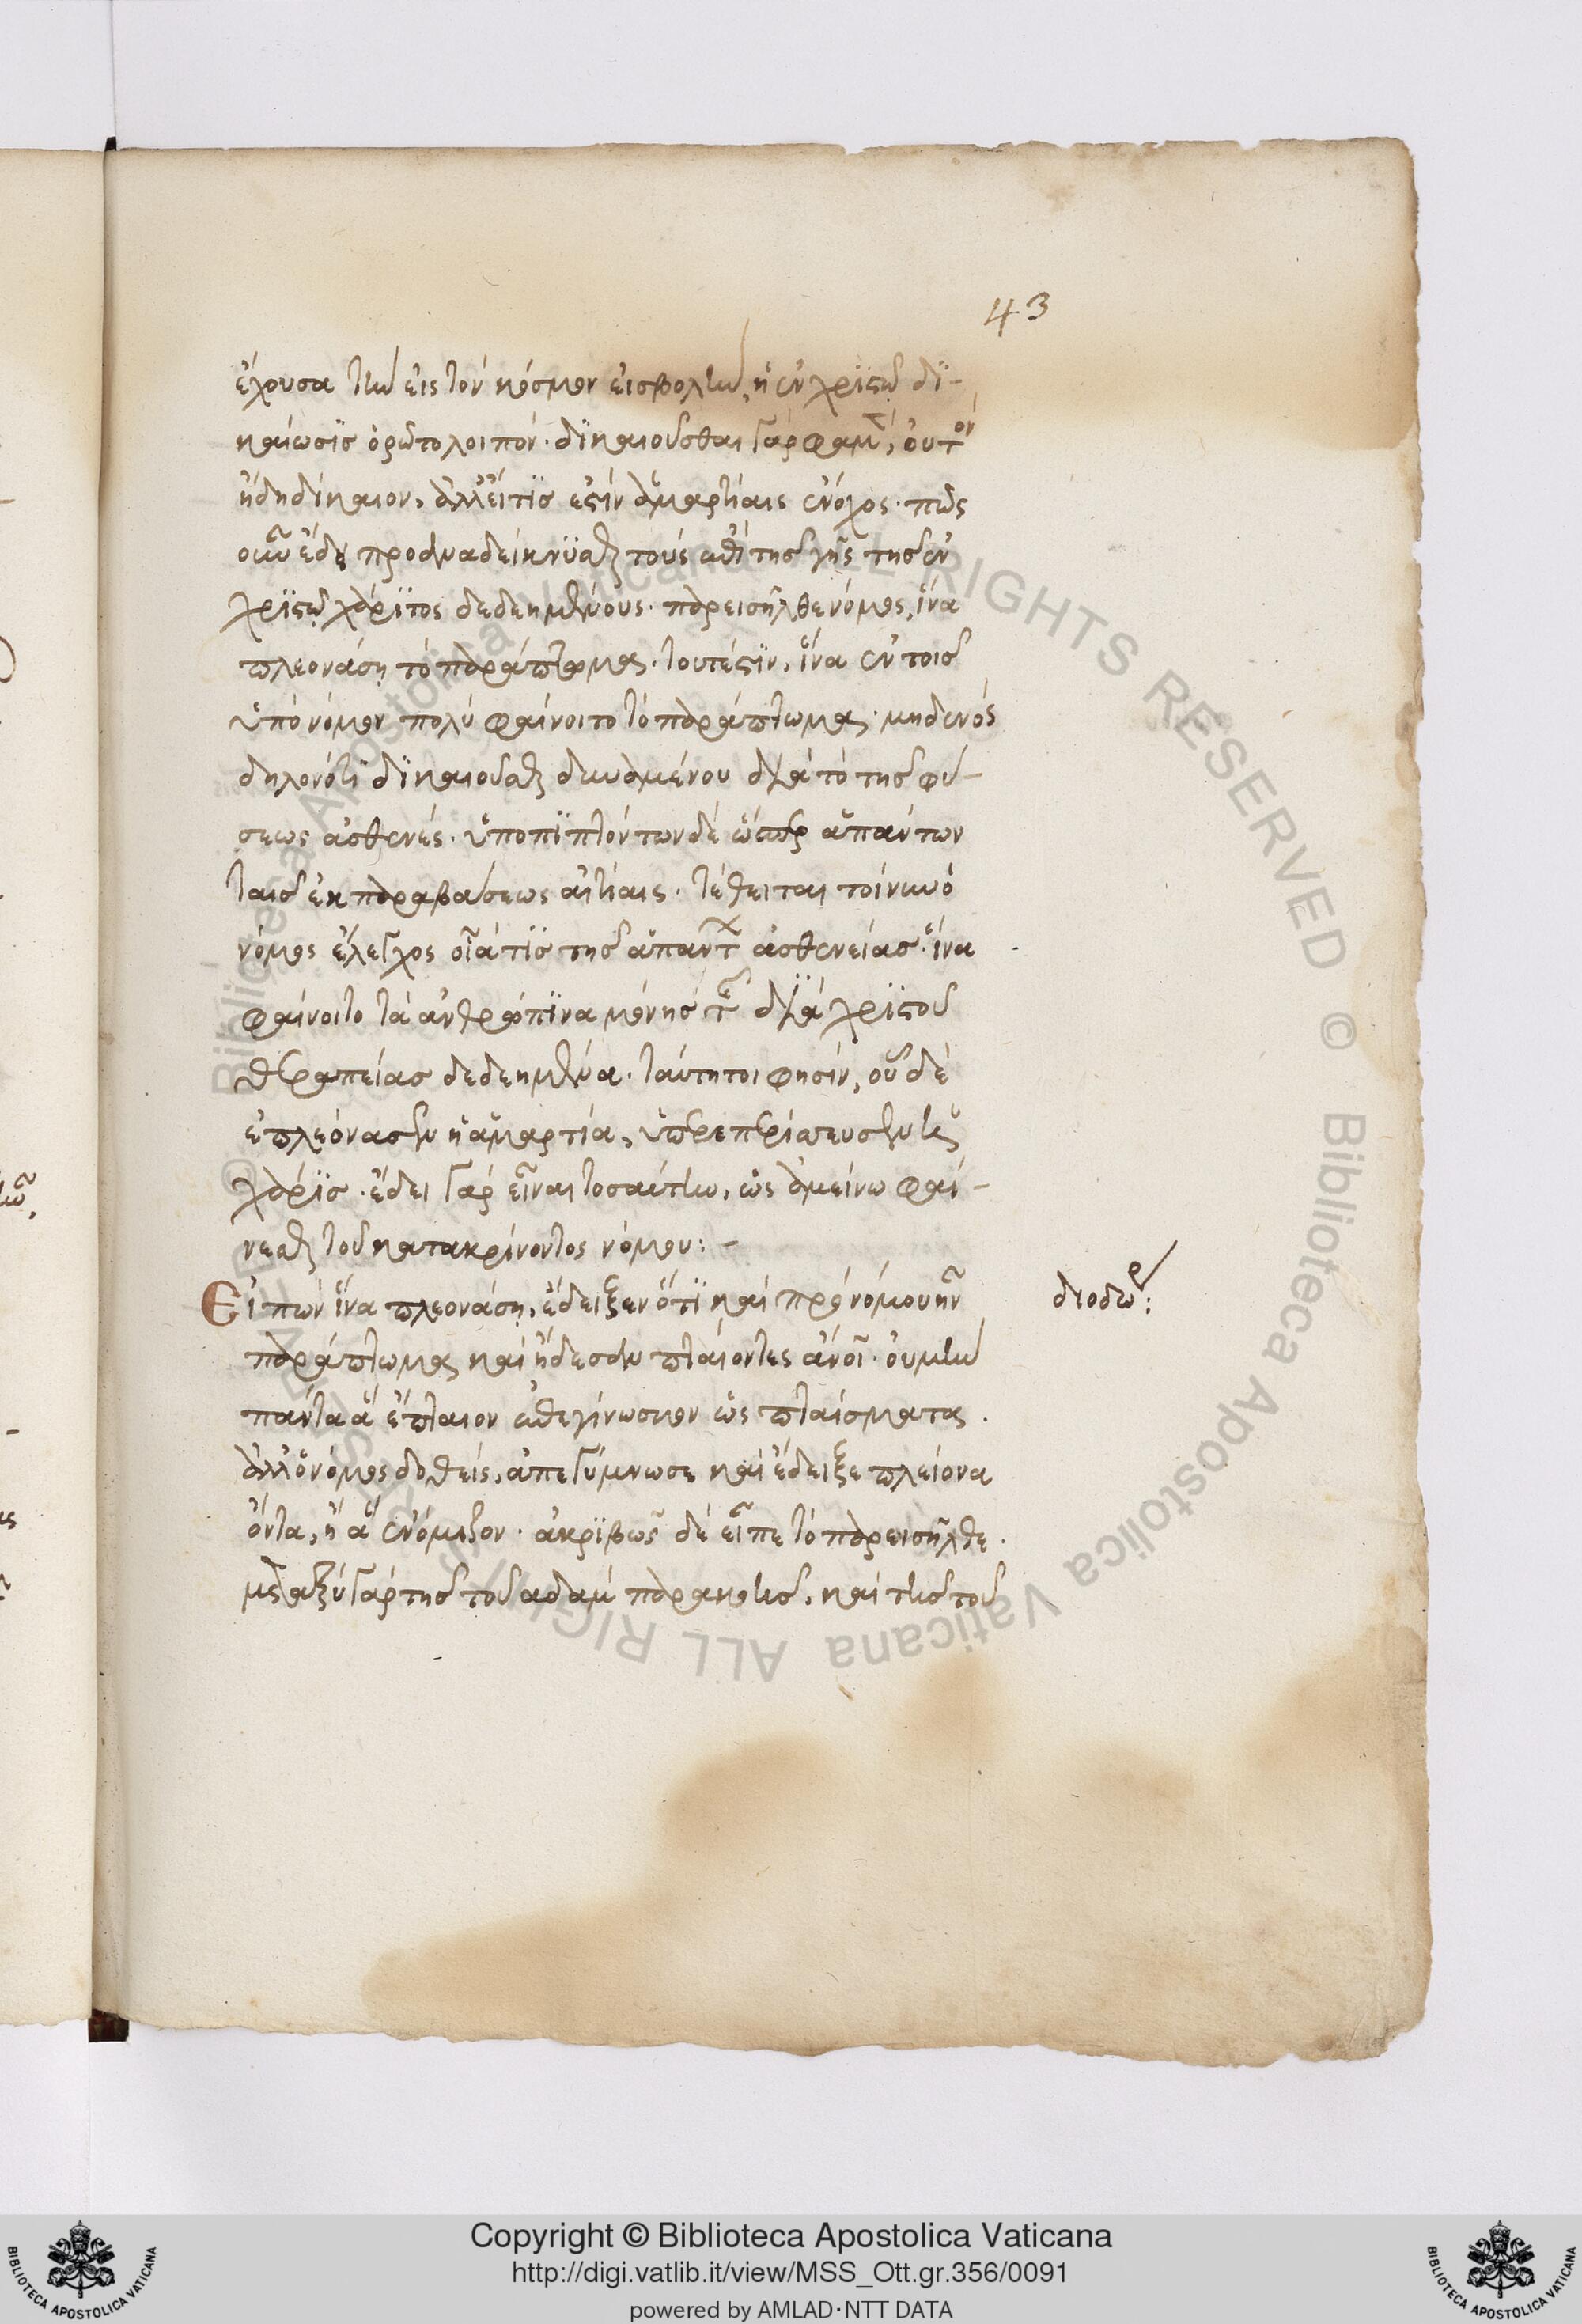 43
ἔχουσα τὴν εἰς τὸν κόσμον εἰσβολὴν, ἡ ἐν χριστῷ δι-
καίωσις ὁρῷτο λοιπόν· δικαιοῦσθαι γάρ φαμεν, οὐ τὸν
ἤδη δίκαιον, ἀλλ' εἴ τις ἐστὶν ἁμαρτίαις ἔνοχος· πῶς
οὖν ἔδει προαναδείκνυσθαι τοὺς ἐπὶ τῆς γῆς τῆς ἐν
χριστῷ χάριτος δεδεημένους· παρεισῆλθε νόμος, ἵνα
πλεονάση τὸ παράπτωμα· τουτέστιν, ἵνα ἐν τοῖς
ὑπὸ νόμον πολὺ φαίνοιτο τὸ παράπτωμα· μηδενὸς
δηλονότι δικαιοῦσθαι δυναμένου διὰ τὸ τῆς φύ-
σεως ἀσθενές· ὑποπιπτόντων δὲ ὥσπερ ἁπάντων
ταῖς ἐκ παραβάσεως αἰτίαις· τέθειται τοίνυν ὁ
νόμος ἔλεγχος οἷά τις τῆς ἁπάντων ἀσθενείας· ἵνα
φαίνοιτο τὰ ἀνθρώπινα μόνης τῆς διὰ χριστοῦ
θεραπείας δεδεημένα· ταύτητοι φησὶν, οὗ δὲ
ἐπλεόνασεν ἡ ἁμαρτία, ὑπερεπερίσσευσεν ἡ
χάρις· ἔδει γὰρ εἶναι τοσαύτην, ὡς ἀμείνω φαί-
νεσθαι τοῦ κατακρίνοντος νόμου:-
Εἰπὼν ἵνα πλεονάση, ἔδειξεν ὅτι καὶ πρὸ νόμου ἦν
διοδώρ:
παράπτωμα καὶ ᾔδεσαν πταίοντες ἄνοι· οὐ μὴν
πάντα ἃ ἔπταιον ἐπεγίνωσκον ὡς πταίσματα·
ἀλλ' ὁ νόμος δοθεὶς, ἀπεγύμνωσε καὶ ἔδειξε πλείονα
ὄντα, ἢ ἃ ἐνόμιζον· ἀκριβῶς δὲ εἶπε τὸ παρεισῆλθε·
μεταξὺ γὰρ τῆς τοῦ ἀδὰμ παρακοῆς, καὶ τῆς τοῦ
Copyright © Biblioteca Apostolica Vaticana
http://digi.vatlib.it/view/MSS_Ott.gr.356/0091
powered by AMLAD·NTT DATA